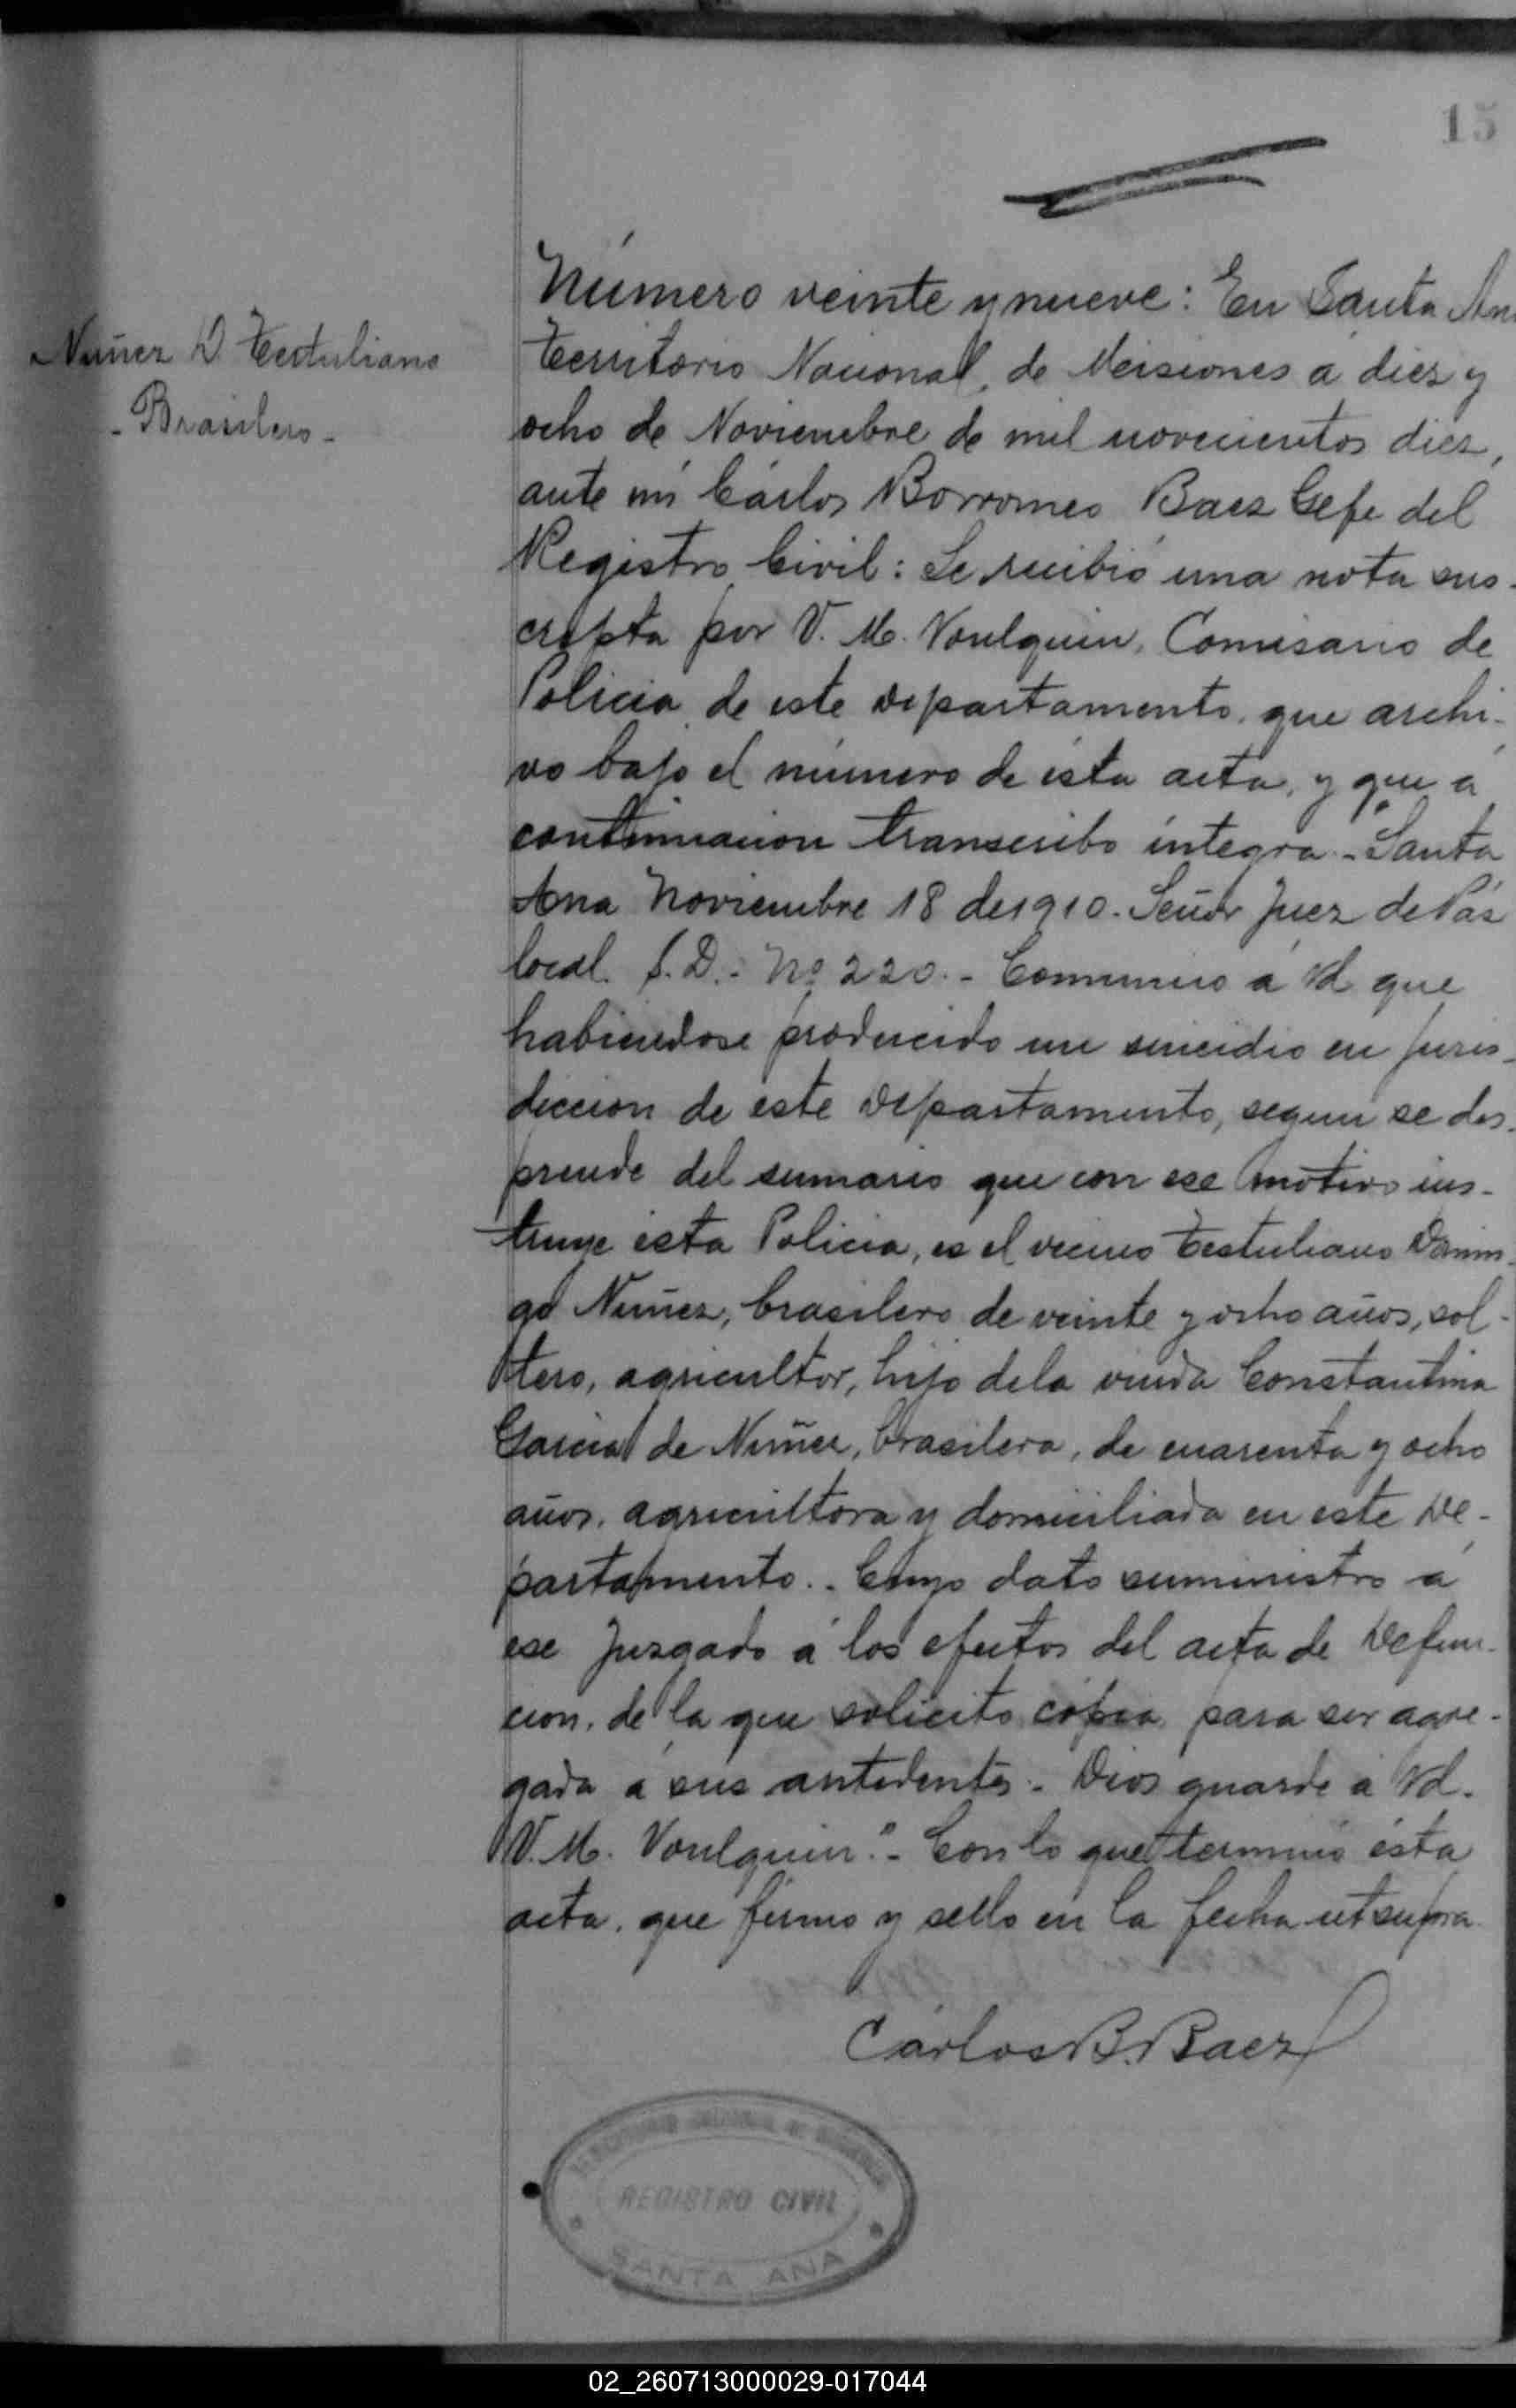 15
Nuñez D. Tertuliano
- Brasilero -
Número veinte y nueve: En Santa An
Territorio Nacional, de Misiones á diez y
ocho de Noviembre de mil novecientos diez,
ante mi Cárlos Borromeo Baez Gefe del
Registro Civil: Se recibió una nota sus-
cripta por V. M. Voulquin, Comisario de
Policia de este departamento, que archi-
vo bajo el número de ésta acta, y que á
continuacion transcribo integra.- "Santa
Ana Noviembre 18 de 1910. Señor Juez de Páz
local. S. D.- No 220.- Comunico á Vd que
habiendose producido un suicidio en juris-
diccion de este departamento, segun se des-
prende del sumario que con ese motivo ins-
truye ésta Policia, es el vecino Tertuliano Domin-
go Nuñez, brasilero de veinte y ocho años, sol-
tero, agricultor, hijo dela viuda Constantina
Garcia de Nuñez, brasilera, de cuarenta y ocho
años, agricultora y domiciliada en este De-
partamento.- Cuyo dato suministro á
ese Juzgado á los efectos del acta de Defun-
cion, de la que solicito cópia para ser agre-
gada á sus antedentes.- Dios guarde á Vd.
V. M. Voulquin".- Con lo que terminó ésta
acta, que firmo y sello en la fecha ut supra.
Cárlos B. Baez
REGISTRO CIVIL
SANTA ANA
02_260713000029-017044